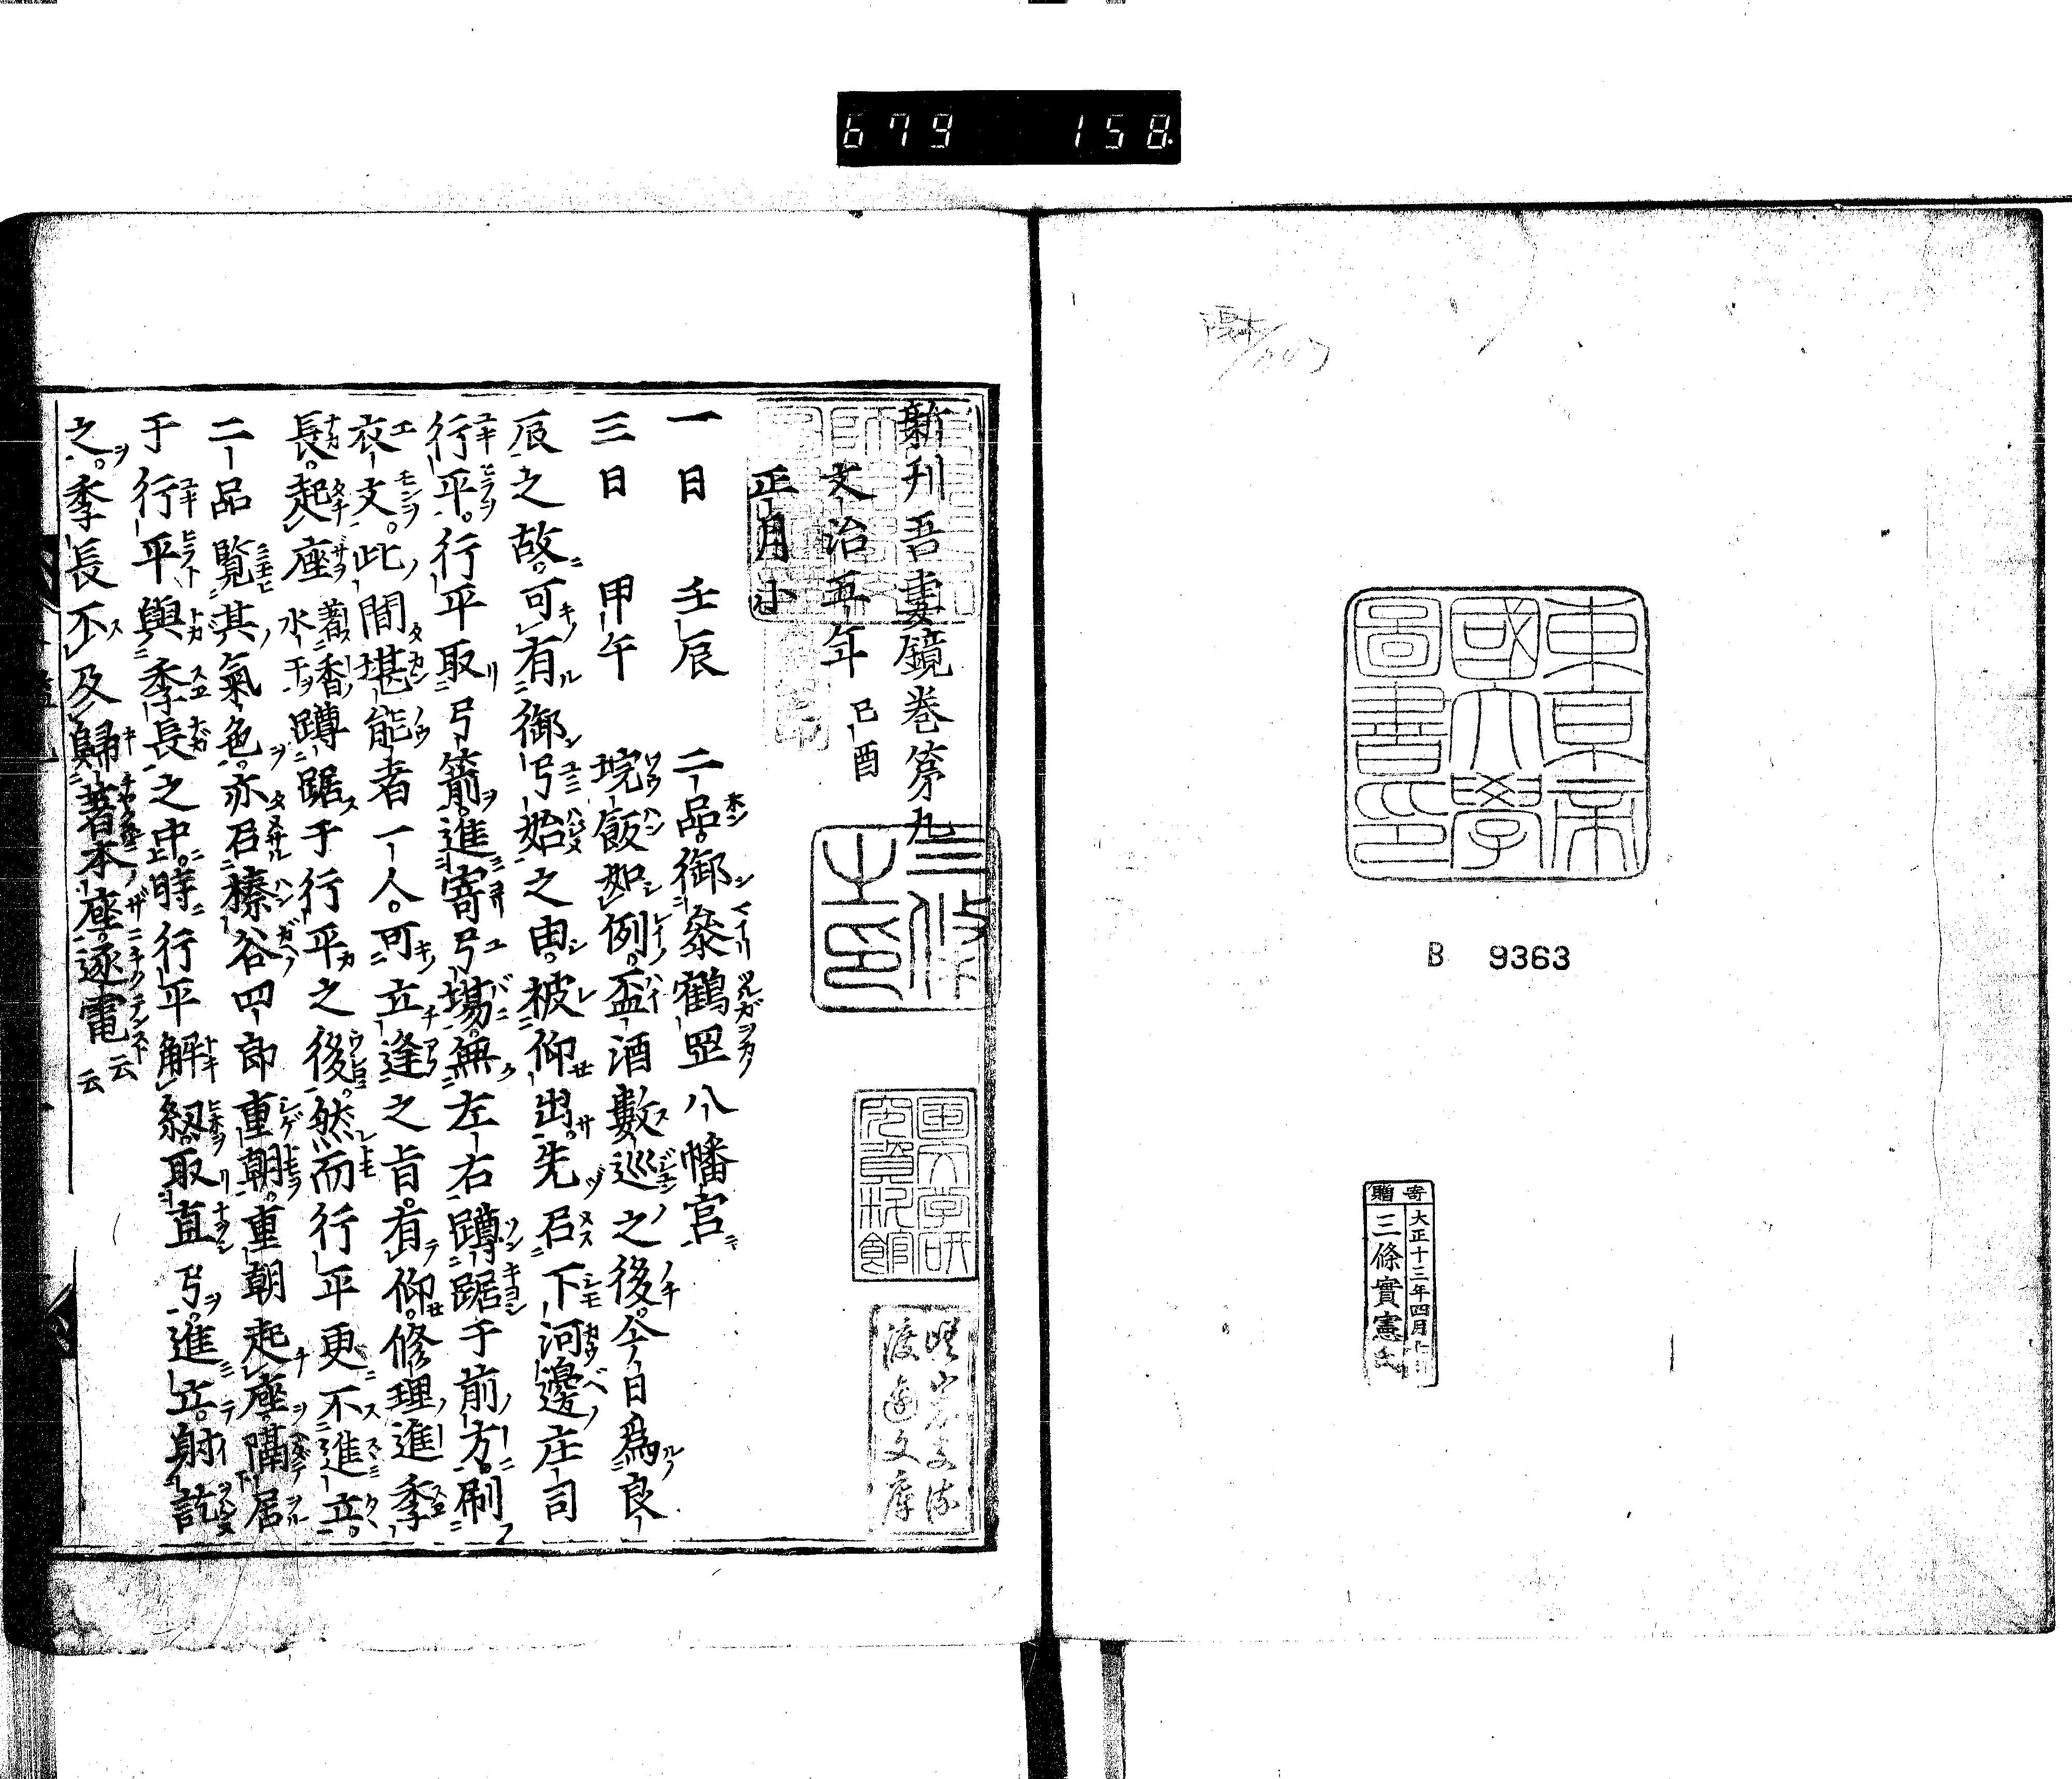 679 158
東京帝
國大學
圖書印
B 9363
寄贈
大正十三年四月
三條實憲氏
新刊吾妻鏡卷第九
文治五年 己酉
正月小
一日 壬辰 二品御參鶴岡八幡宮
三日 甲午 垸飯如例盃酒數巡之後今日爲良
辰之故可有御弓始之由被仰出先召下河邊庄司
行平行平取弓箭進寄弓塲無左右蹲踞于前方刷
衣文此間堪能者一人可立逢之旨有仰修理進季
長起座 著香水干 蹲踞于行平之後然而行平更不進立
二品覽其氣色亦召榛谷四郎重朝重朝起座隔居
于行平與季長之中時行平解紐取直弓進立射訖
之季長不及歸著本座逐電云云